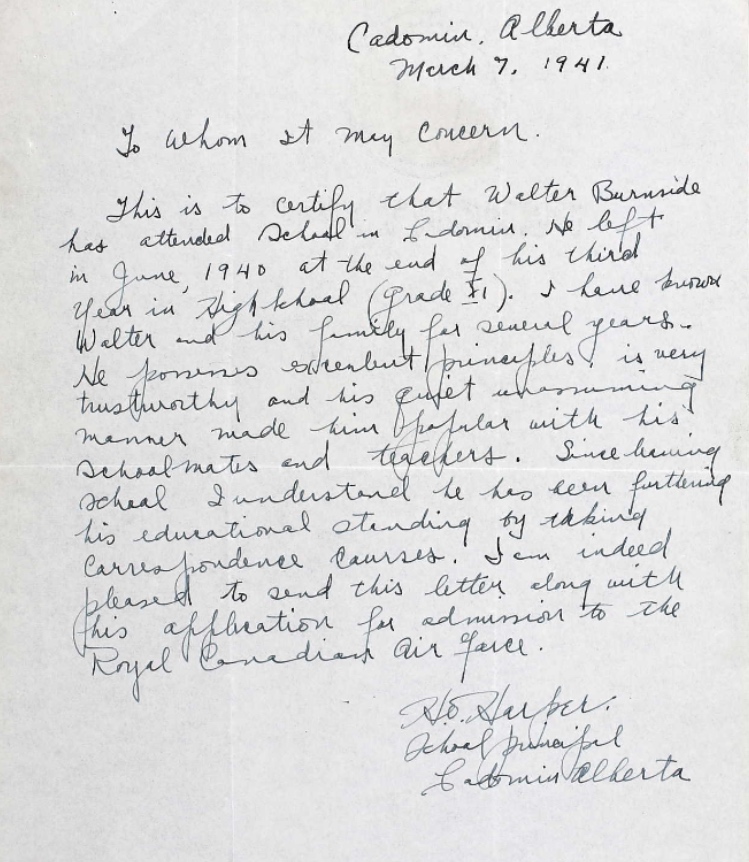 Cadomin, Alberta
March 7, 1941.
To Whom It May Concern.
This is to certify that Walter Burnside
has attended School in Cadomin. He left
in June, 1940 at the end of his third
Year in High School (Grade XI). I have known
Walter and his family for several years.
He possesses excellent principles, is very
trustworthy and his quiet unassuming
manner made him popular with his
schoolmates and teachers. Since leaving
school I understand he has been furthering
his educational standing by taking
Correspondence Courses. I am indeed
pleased to send this letter along with
his application for admission to the
Royal Canadian Air Force.
H.O. Harper.
School principal
Cadomin Alberta